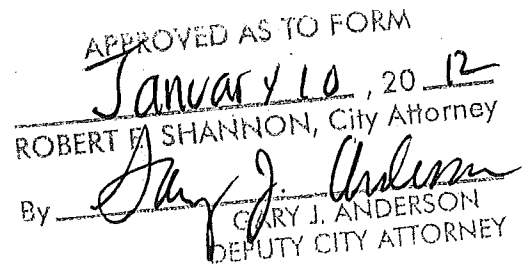 APPROVED AS TO FORM
January 10, 20 12
ROBERT E. SHANNON, City Attorney
By Gary J. Anderson
GARY J. ANDERSON
DEPUTY CITY ATTORNEY